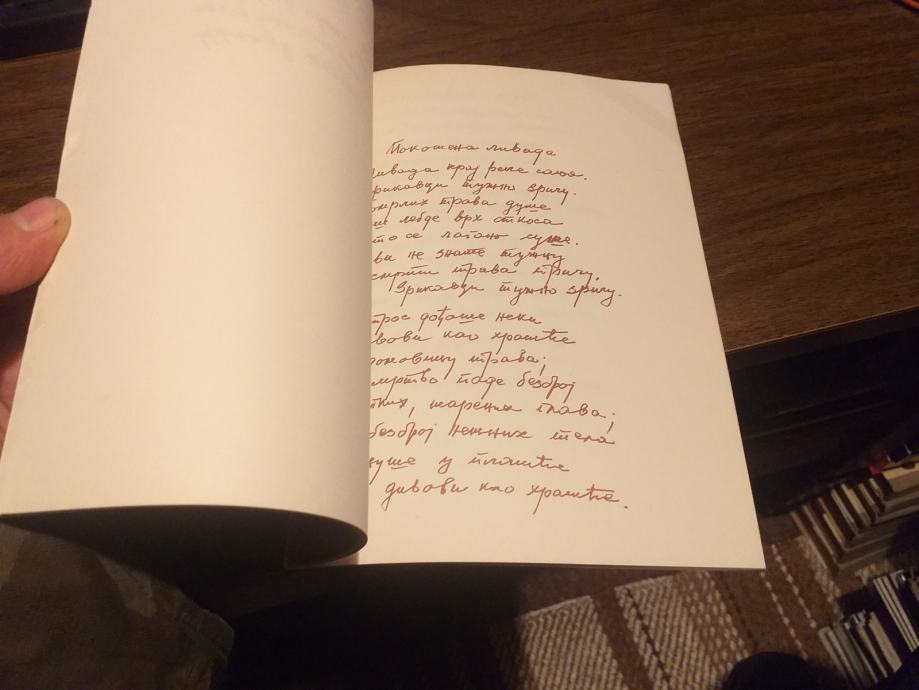 Покошена ливада
ивада крај реке сања.
рикавци тужно зричу.
омрлих трава душе
ш лебде врх откоса
то се лагано суше.
ви не знате тужну
смрти трава причу.
Зрикавци тужно зричу.
трос дођоше неки
вови као храшће
домовину трава;
мртво паде безброј
тких, шарених глава;
безброј нежних тела
у плашће
дивови као храшће.